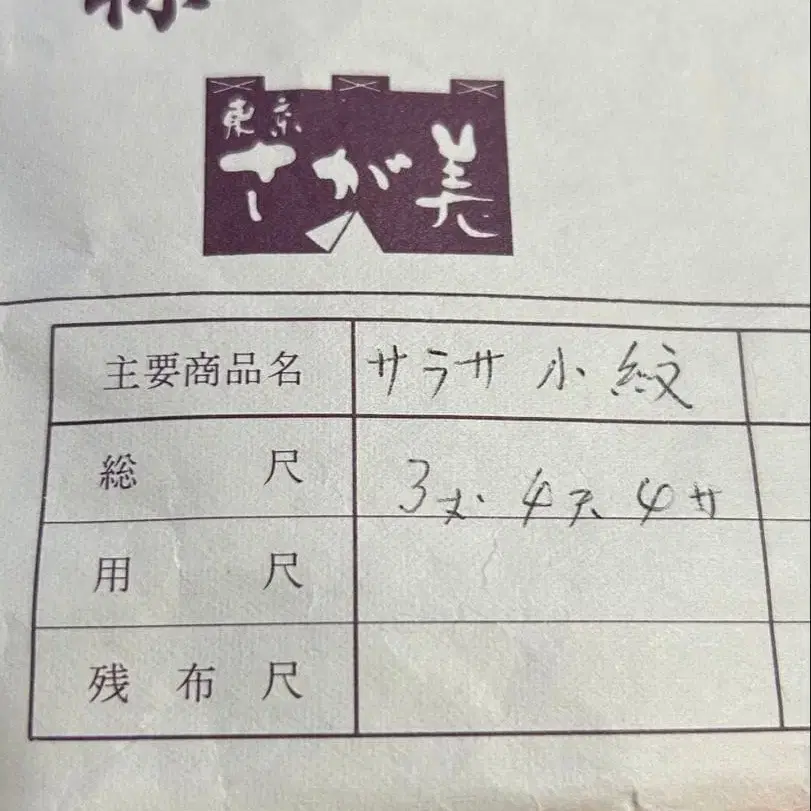 様
東京
さが美
主要商品名 サラサ 小紋
総尺 3丈 4尺 4サ
用尺
残布尺